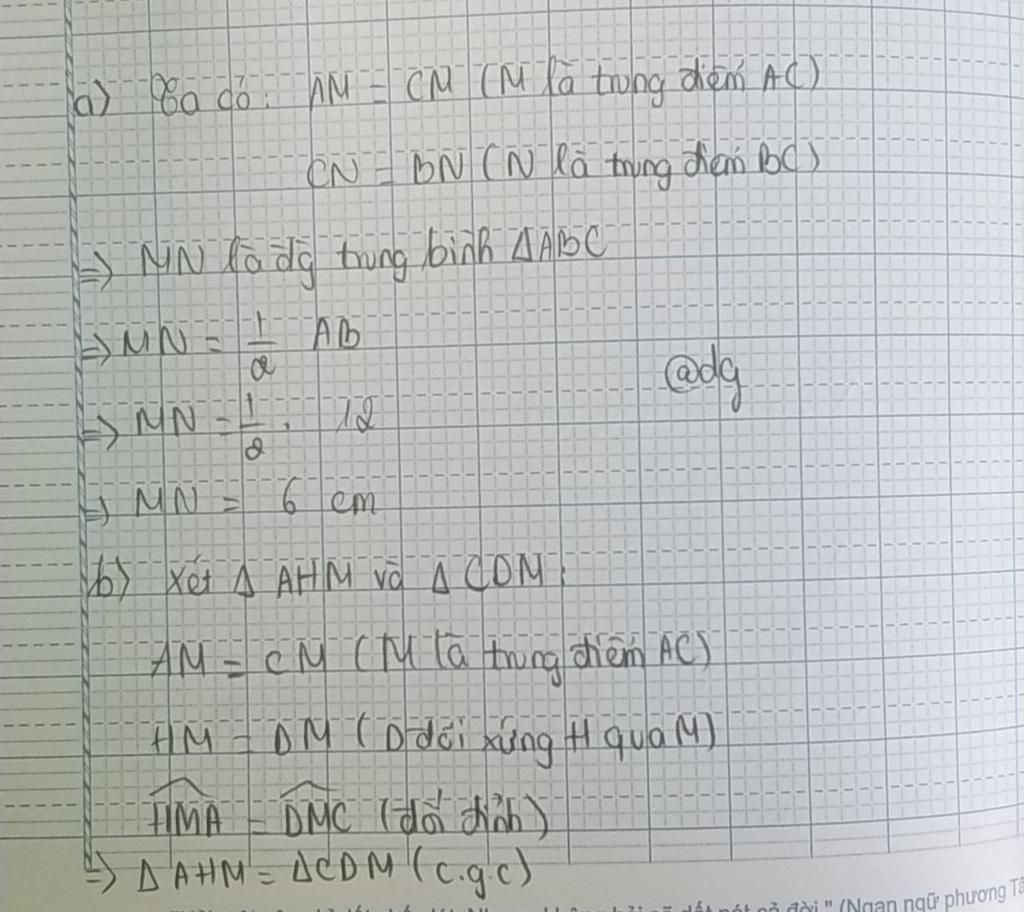 a) Ta có: AM = CM (M là trung điểm AC)
CN = BN (N là trung điểm BC)
=> MN là đg trung bình ΔABC
=> MN = 1/2 AB
@dg
=> MN = 1/2 . 12
=> MN = 6 cm
b) Xét Δ AHM và Δ CDM:
AM = CM (M là trung điểm AC)
HM = DM (D đối xứng H qua M)
\widehat{HMA} = \widehat{DMC} (đối đỉnh)
=> Δ AHM = ΔCDM (c.g.c)
(Ngạn ngữ phương Tâ